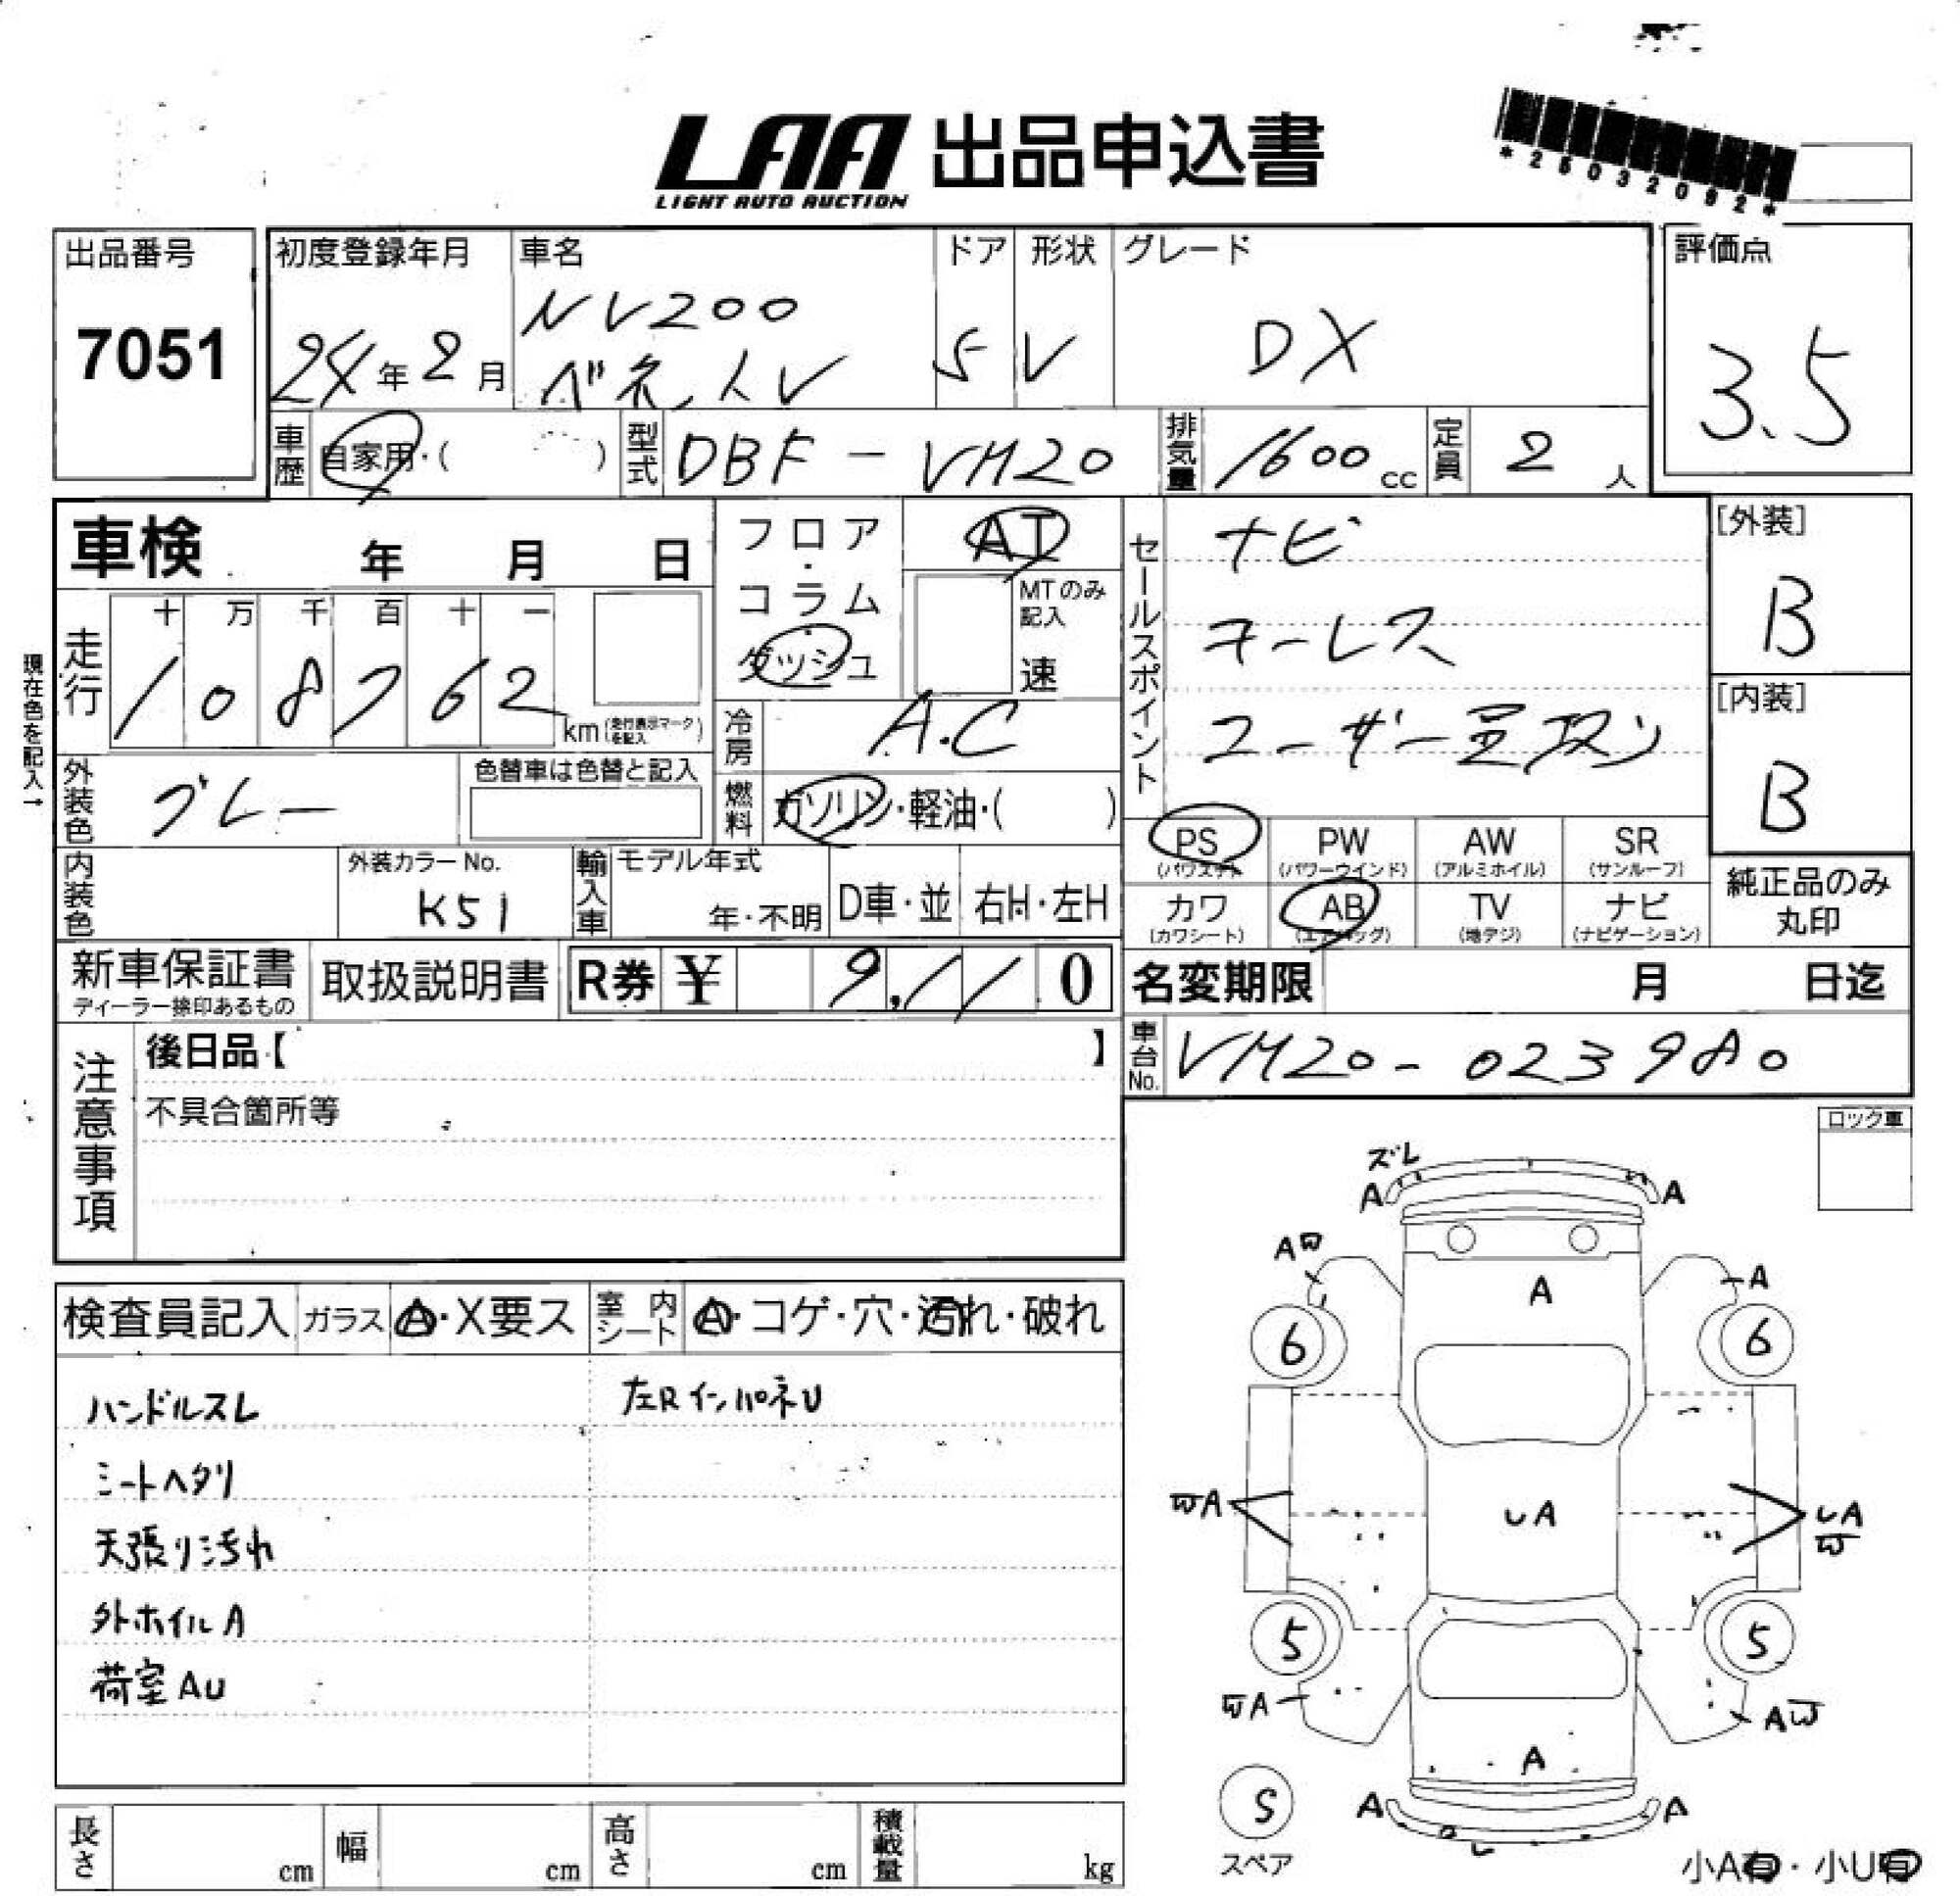 LAA 出品申込書
LIGHT AUTO AUCTION
*25032092*
出品番号
7051
初度登録年月
24年2月
車名
NV200
バネットV
ドア
5
形状
V
グレード
DX
評価点
3.5
車歴
自家用・( )
型式
DBF-VM20
排気量
1600cc
定員
2人
車検 年 月 日
現在色を記入→
走行
十 万 千 百 十 一
1 0 8 7 6 2
km(走行表示マークを記入)
フロア・コラム
ダッシュ
AT
MTのみ記入
速
冷房
A.C
燃料
ガソリン・軽油・( )
外装色
グレー
色替車は色替と記入
内装色
外装カラーNo.
K51
輸入車
モデル年式
年・不明
D車・並
右H・左H
セールスポイント
ナビ
キーレス
ユーザー買取り
[外装]
B
[内装]
B
PS (パワステ)
PW (パワーウインド)
AW (アルミホイル)
SR (サンルーフ)
カワ (カワシート)
AB (エアバッグ)
TV (地デジ)
ナビ (ナビゲーション)
純正品のみ
丸印
新車保証書
ディーラー捺印あるもの
取扱説明書
R券 ¥ 9,110
名変期限 月 日迄
車台No.
VM20-0239980
注意事項
後日品【 】
不具合箇所等
ロック車
検査員記入
ガラス
A・X要ス
室内シート
A・コゲ・穴・汚れ・破れ
ハンドルスレ
シートヘタリ
天張り汚れ
外ホイルA
荷室AU
左RインパネU
ズレ
A A
AW A
A
6 6
WA UA UA
W
5 5
WA AW
A
S
スペア
A A
小A有・小U有
長さ cm
幅 cm
高さ cm
積載量 kg